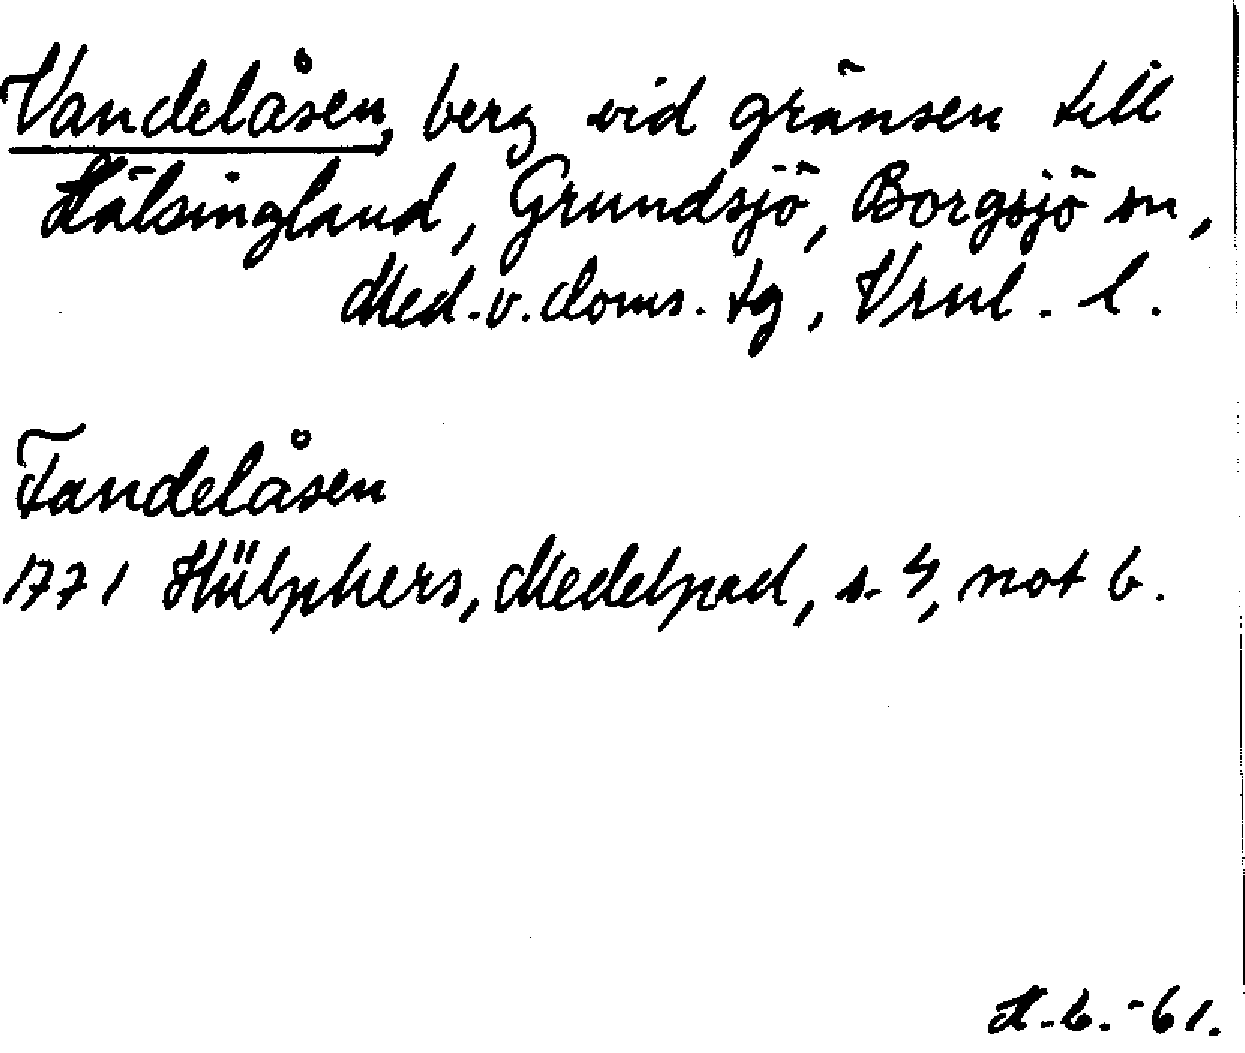 Vandelåsen, berg vid gränsen till
Hälsingland, Grundsjö, Borgsjö sn,
Med. v. doms. tg, Vrnl. l.
Tandelåsen
1771 Hülphers, Medelpad, s. 4, not 6.
H. b. -61.